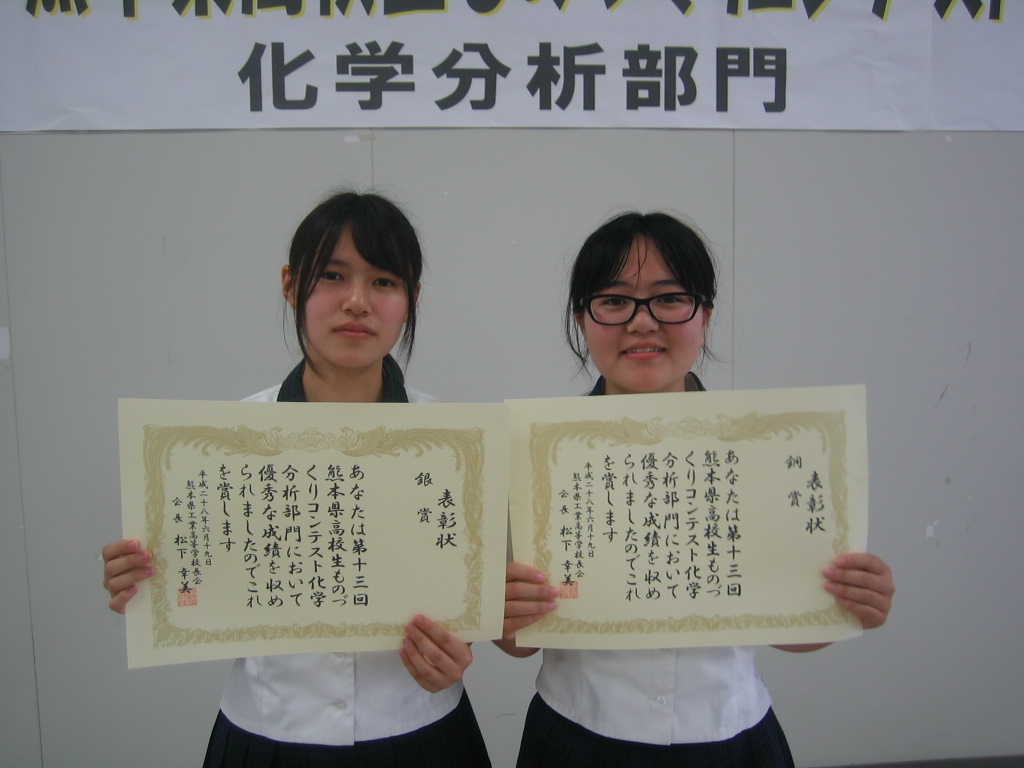 化学分析部門
表彰状
銀賞
あなたは第十三回
熊本県高校生ものづ
くりコンテスト化学
分析部門において
優秀な成績を収め
られましたのでこれ
を賞します
平成二十八年六月十九日
熊本県工業高等学校長会
会長 松下 幸美
表彰状
銅賞
あなたは第十三回
熊本県高校生ものづ
くりコンテスト化学
分析部門において
優秀な成績を収め
られましたのでこれ
を賞します
平成二十八年六月十九日
熊本県工業高等学校長会
会長 松下 幸美